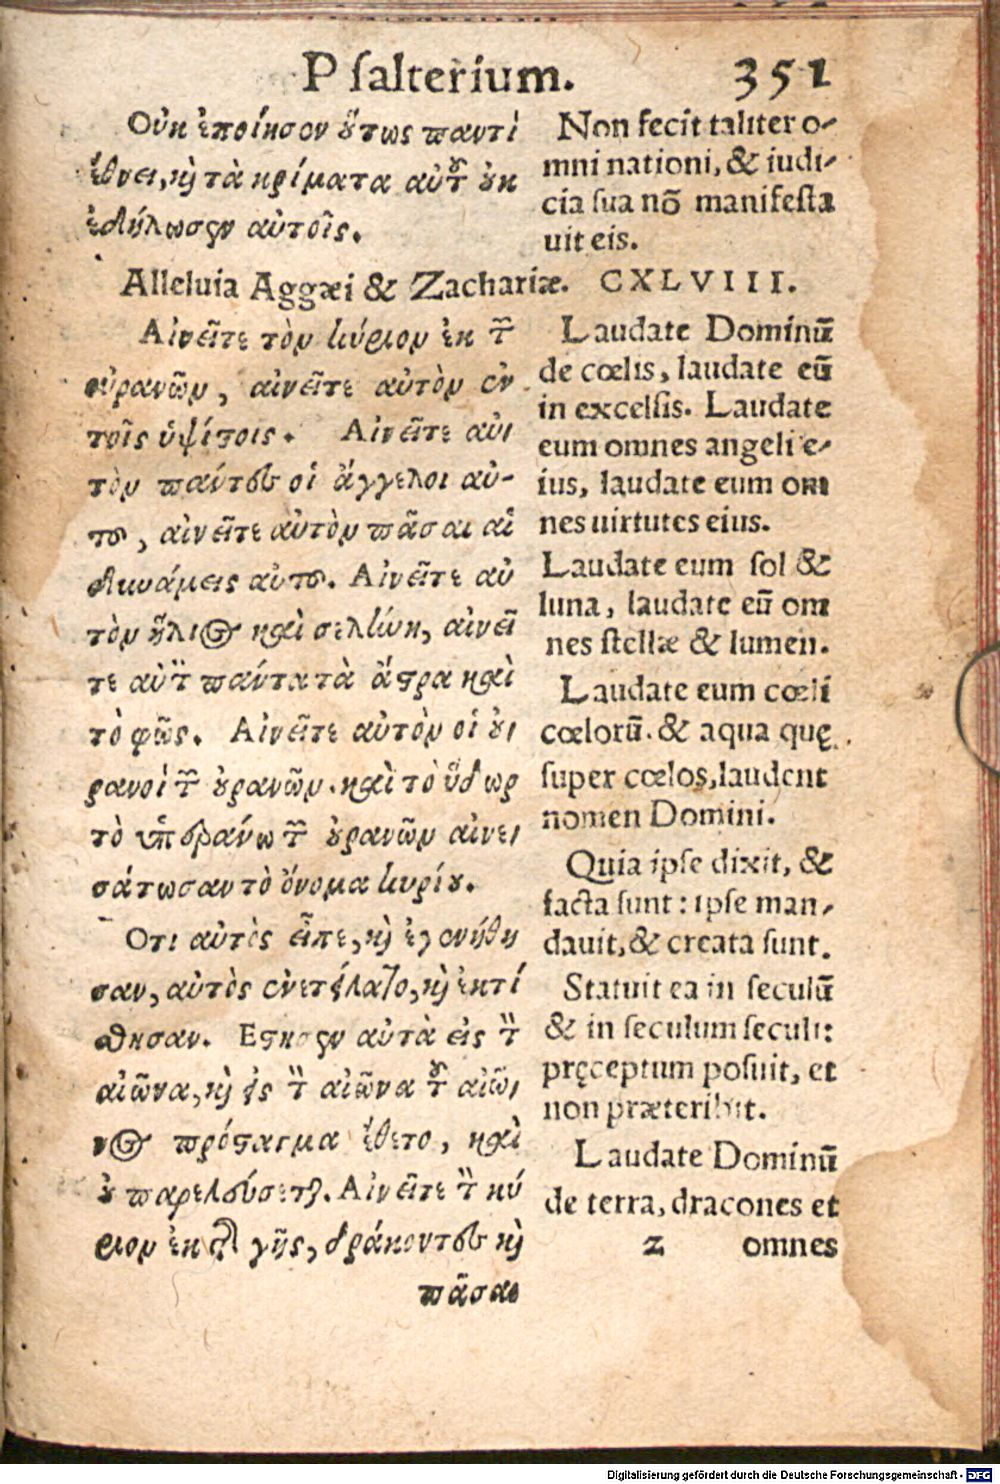 Pſalterium. 351
Οὐκ ἐποίησεν ὅτως παντὶ
ἔθνει, καὶ τὰ κρίματα αὐτοῦ οὐκ
ἐδήλωσεν αὐτοῖς.
Alleluia Aggæi & Zachariæ. CXLVIII.
Αἰνεῖτε τὸν κύριον ἐκ τῶν
οὐρανῶν, αἰνεῖτε αὐτὸν ἐν
τοῖς ὑψίστοις. Αἰνεῖτε αὐ
τὸν πάντες οἱ ἄγγελοι αὐ-
τοῦ, αἰνεῖτε αὐτὸν πᾶσαι αἱ
δυνάμεις αὐτοῦ. Αἰνεῖτε αὐ
τὸν ἥλιος καὶ σελήνη, αἰνεῖ
τε αὐτὸν πάντα τὰ ἄστρα καὶ
τὸ φῶς. Αἰνεῖτε αὐτὸν οἱ οὐ
ρανοὶ τῶν οὐρανῶν. καὶ τὸ ὕδωρ
τὸ ὑπεράνω τῶν οὐρανῶν αἰνε
σάτωσαν τὸ ὄνομα κυρίου.
Οτι αὐτὸς εἶπε, καὶ ἐγενήθη
σαν, αὐτὸς ἐνετείλατο, καὶ ἐκτί
σθησαν. Εστησεν αὐτὰ εἰς τὸν
αἰῶνα, καὶ εἰς τὸν αἰῶνα τοῦ αἰῶ
νος πρόσταγμα ἔθετο, καὶ
οὐ παρελεύσεται. Αἰνεῖτε τὸν κύ
ριον ἐκ τῆς γῆς, δράκοντες καὶ
πᾶσαι
Non fecit taliter o-
mni nationi, & iudi-
cia ſua nõ manifeſta
uit eis.
Laudate Dominū
de cœlis, laudate eū
in excelſis. Laudate
eum omnes angeli e-
ius, laudate eum om
nes uirtutes eius.
Laudate eum ſol &
luna, laudate eū om
nes ſtellæ & lumen.
Laudate eum cœli
cœlorū. & aqua quę
ſuper cœlos, laudent
nomen Domini.
Quia ipſe dixit, &
facta ſunt: ipſe man-
dauit, & creata ſunt.
Statuit ea in ſeculū
& in ſeculum ſeculi:
pręceptum poſuit, et
non præteribit.
Laudate Dominū
de terra, dracones et
z omnes
Digitalisierung gefördert durch die Deutsche Forschungsgemeinschaft - DFG